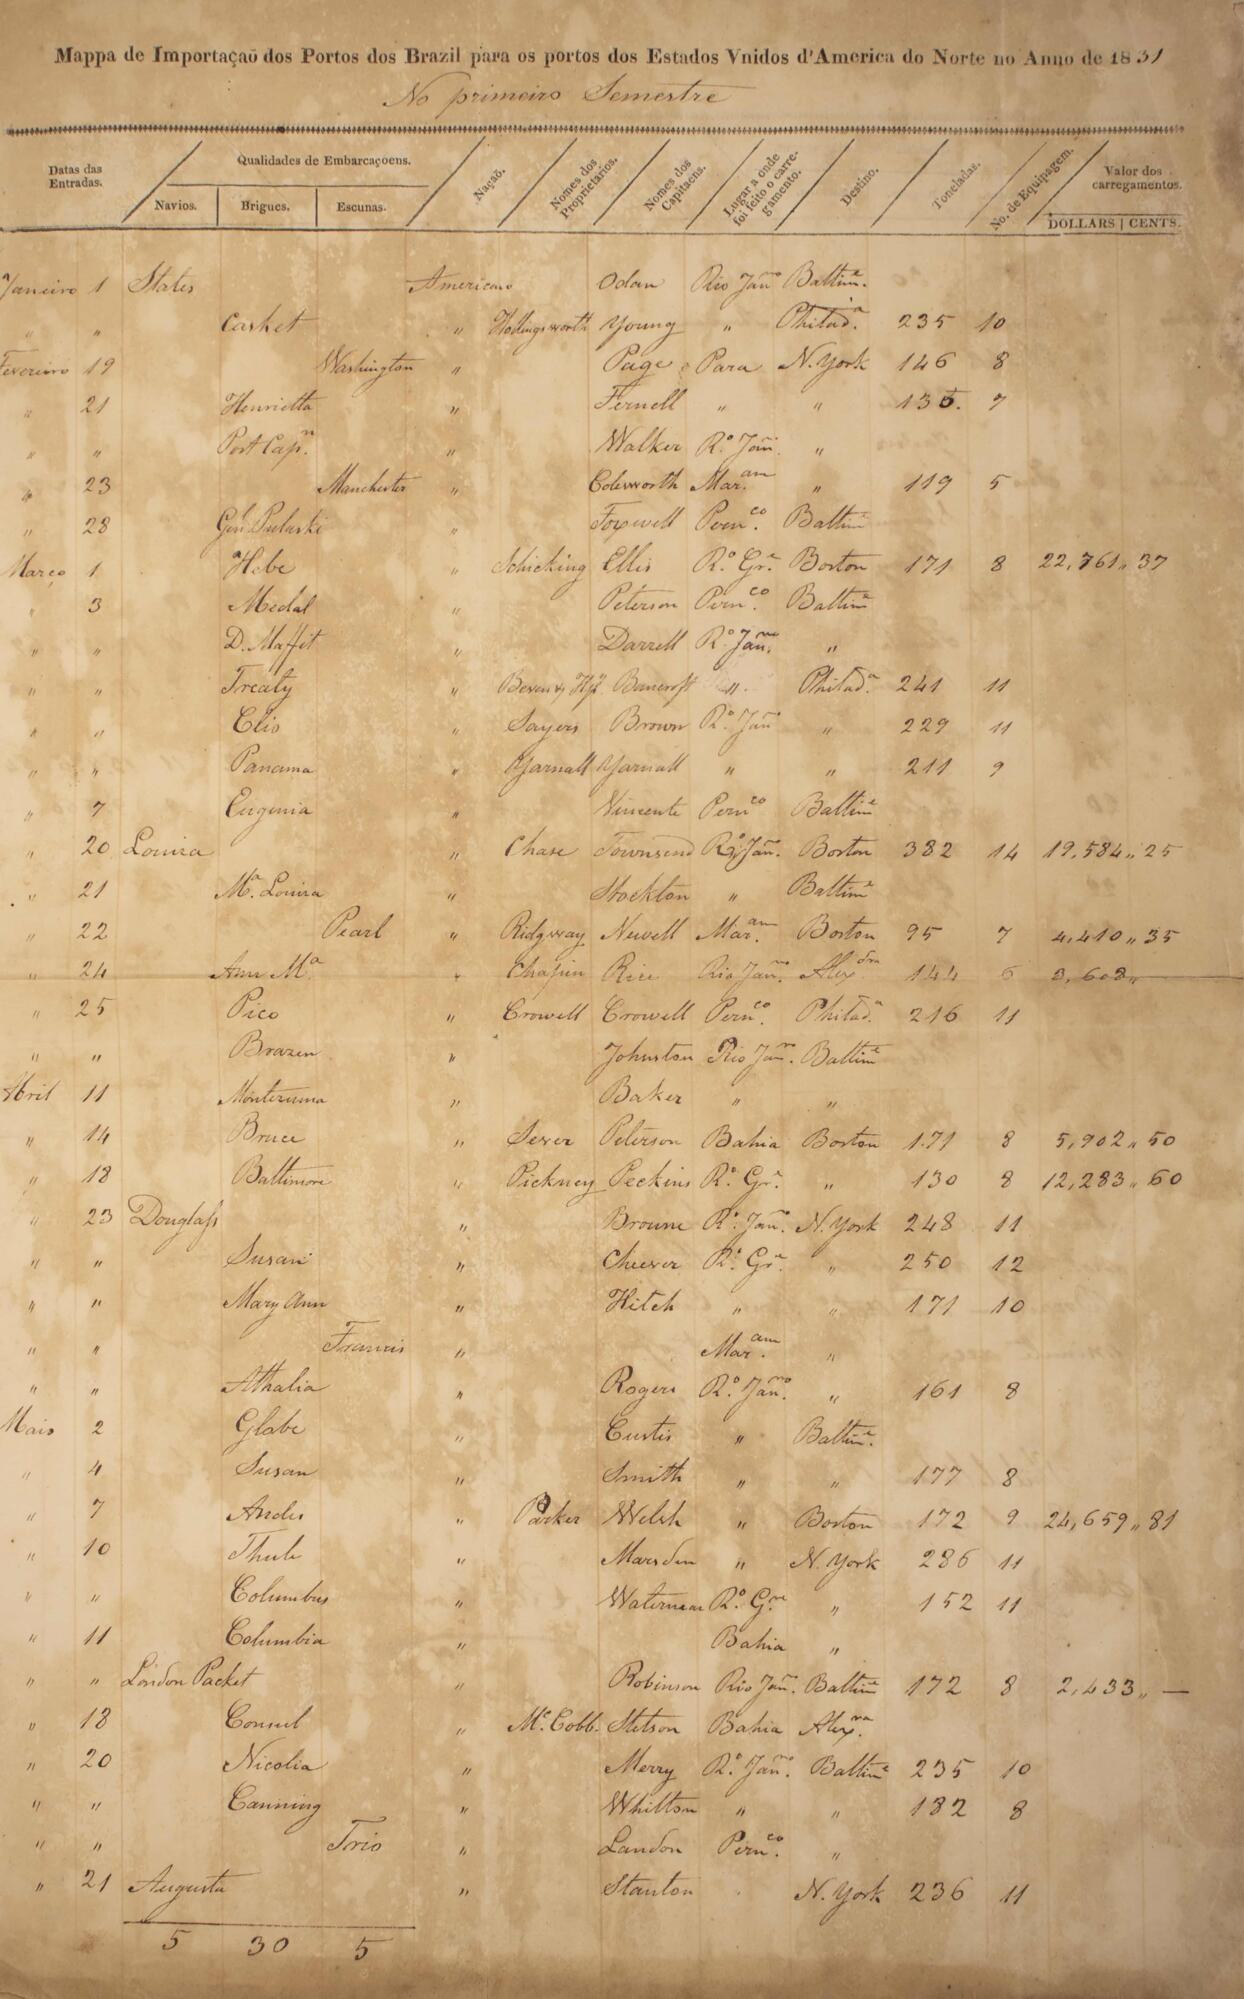 Mappa de Importaçaõ dos Portos dos Brazil para os portos dos Estados Vnidos d'America do Norte no Anno de 1831
No primeiro Semestre
Datas das Entradas. Qualidades de Embarcaçoens. Navios. Brigues. Escunas. Naçaõ. Nomes dos Proprietarios. Nomes dos Capitaens. Lugar a onde foi feito o carregamento. Destino. Toneladas. No. de Equipagem. Valor dos carregamentos. DOLLARS | CENTS.
Janeiro 1 States Americano Odan Rio Janro Baltime.
" " Casket " Hollingsworth Young " Philada. 235 10
Fevereiro 19 Washington " Page Para N. York 146 8
" 21 Henrietta " Fernell " " 7
" " Port Capn. " Walker Ro. Jan. "
" 23 Manchester " Colesworth Maram. " 119 5
" 28 Genl. Pulaski " Foxwell Pernco. Baltime
Março 1 Hebe " Schicking Ellis Ro. Gre. Boston 171 8 22,761 " 37
" 3 Medal " Peterson Pernco. Baltime
" " D. Maffit " Darrell Ro. Janro. "
" " Treaty " Bancroft " Philada. 241 11
" " Clio " Sayers Brown Ro. Janro " 229 11
" " Panama " Yarnall Yarnall " " 211 9
" 7 Eugenia " Vincente Pernco Baltime
" 20 Louisa " Chase Townsend Ro. Janro. Boston 382 14 19,584 " 25
" 21 Ma. Louisa " Stockton " Baltime
" 22 Pearl " Ridgway Newell Maram. Boston 95 7 4,410 " 35
" 24 Ann Ma. " Chapin Rice Rio Janro. Alexdra 144 6 3,608 "
" 25 Pico " Crowell Crowell Pernco. Philada. 216 11
" " Brazen " Johnston Rio Janro. Baltime
Abril 11 Montezuma " Baker " "
" 14 Bruce " Sever Peterson Bahia Boston 171 8 5,902 " 50
" 18 Baltimore " Pickney Peckins Ro. Gre. " 130 8 12,283 " 60
" 23 Douglass " Browne Ro. Janro. N. York 248 11
" " Susan " Cheever Ro. Gre. " 250 12
" " Mary Ann " Hitch " " 171 10
" " Francis " Maram. "
" " Athalia " Rogers Ro. Janro. " 161 8
Maio 2 Globe " Curtis " Baltime.
" 4 Susan " Smith " " 177 8
" 7 Andes " Parker Welsh " Boston 172 9 24,659 " 81
" 10 Thule " Marsden " N. York 286 11
" " Columbus " Waterman Ro. Gre. " 152 11
" 11 Columbia " Bahia "
" " London Packet " Robinson Rio Janro. Baltime 172 8 2,433 " —
" 18 Consul " Mc. Cobb. Stetson Bahia Alexra.
" 20 Nicolia " Merry Ro. Janro. Baltime 235 10
" " Canning " Whitton " " 182 8
" " Trio " Landon Pernco. "
" 21 Augusta " Stanton N. York 236 11
5 30 5